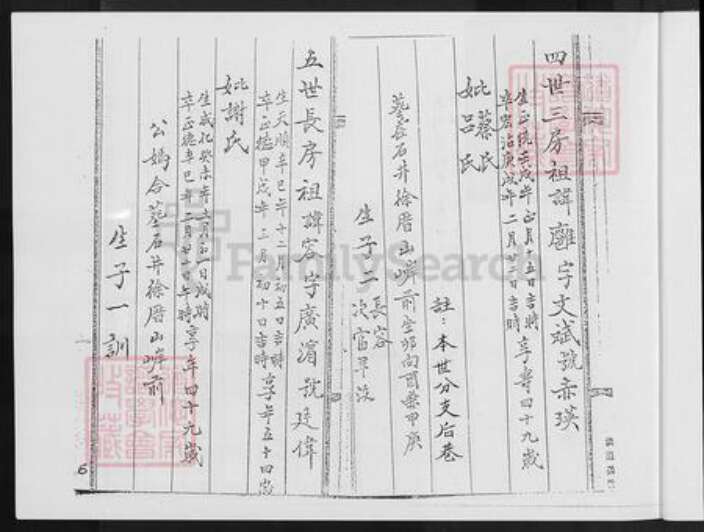 四世三房祖諱離字文斌號赤瑛
生正統壬戌年正月十五日吉時
卒宏治庚戌年二月廿二日吉時
享壽四十九歲
妣蔡氏
呂氏
註：本世分支后巷
葬在石井徐厝山嶼前坐卯向酉兼甲庚
生子二
長容
次官早沒
五世長房祖諱容字廣濵號廷偉
生天順辛巳年十二月初五日吉時
卒正德甲戌年二月初十日吉時
享年五十四歲
妣謝氏
生成化癸未年十月初一日戌時
卒正德辛巳年二月廿二日午時
享年四十九歲
公媽合墓石井徐厝山嶼前
生子一訓
6
FamilySearch